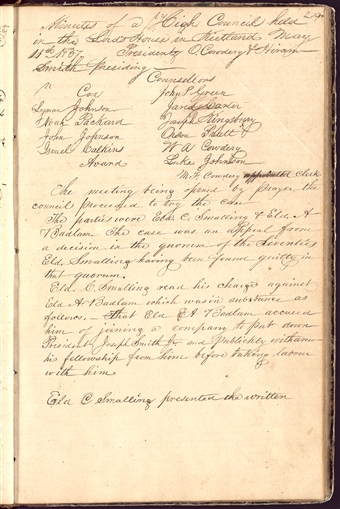 Minutes of a High Council held
in the Lord's House in Kirtland May
11th 1837. Presidents O. Cowdery & Hiram
Smith presiding
Counsellors
Cox John P. Green
Lyman Johnson Jared Carter
Noah Packard Joseph Kingsbury
John Johnson Orson Pratt
Israel Calkins W A Cowdery
Award Luke Johnson
W. F. Cowdery appointed clerk
The meeting being opened by prayer the
council proceeded to try the case
The parties were Elds. C. Smalling & Eld. A
Badlam. The case was an appeal from
a decision in the quorum of the Seventies
Eld. Smalling having been found guilty in
that quorum.
Eld. C. Smalling read his charge against
Eld A Badlam which was in substance as
follows. - That Eld A Badlam accused
him of joining a company to put down
President Joseph Smith Jr and Publickly withdrew
his fellowship from him before taking labour
with him.
Eld C Smalling presented the written